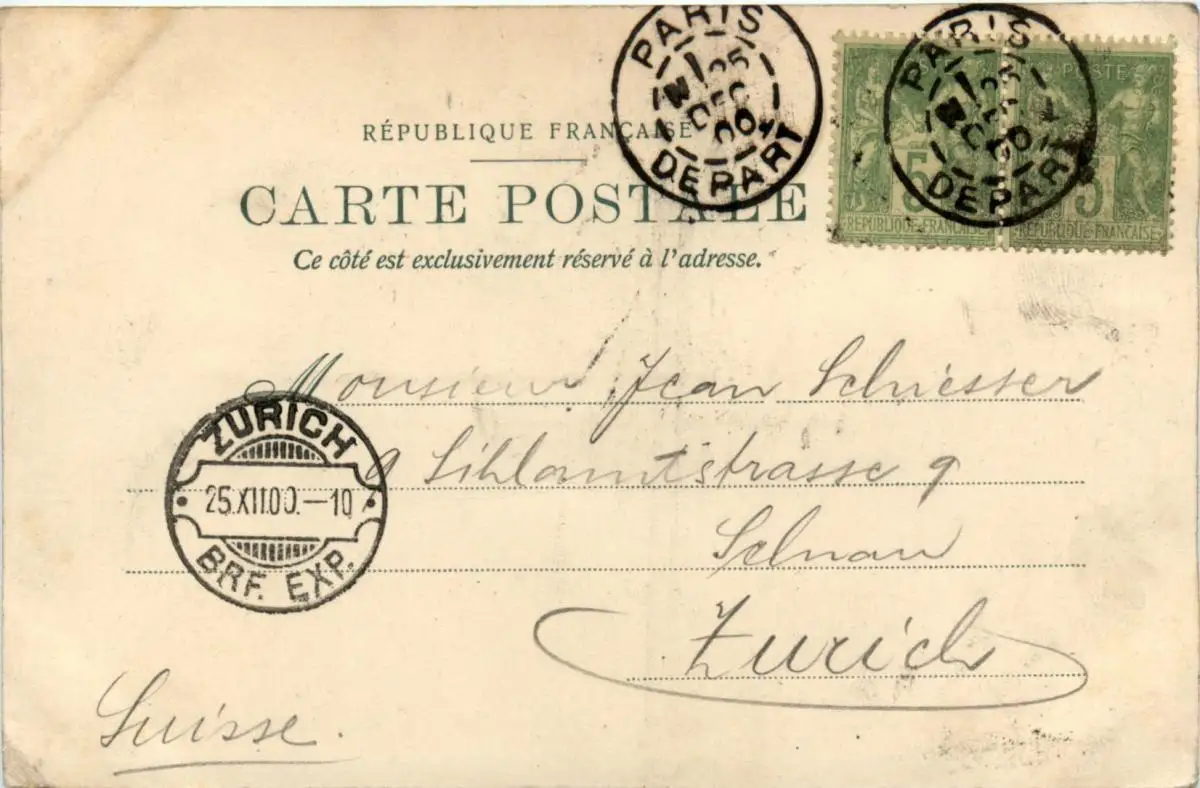 PARIS
25
DEC
00
DEPART
PARIS
25
DEC
00
DEPART
POSTE
5
5
REPUBLIQUE FRANÇAISE
REPUBLIQUE FRANÇAISE
RÉPUBLIQUE FRANÇAISE
CARTE POSTALE
Ce côté est exclusivement réservé à l'adresse.
Monsieur Jean Schiesser
9 Sihlamtstrasse 9
Selnau
Zurich
Suisse.
ZÜRICH
25.XII.00.-10
BRF. EXP.